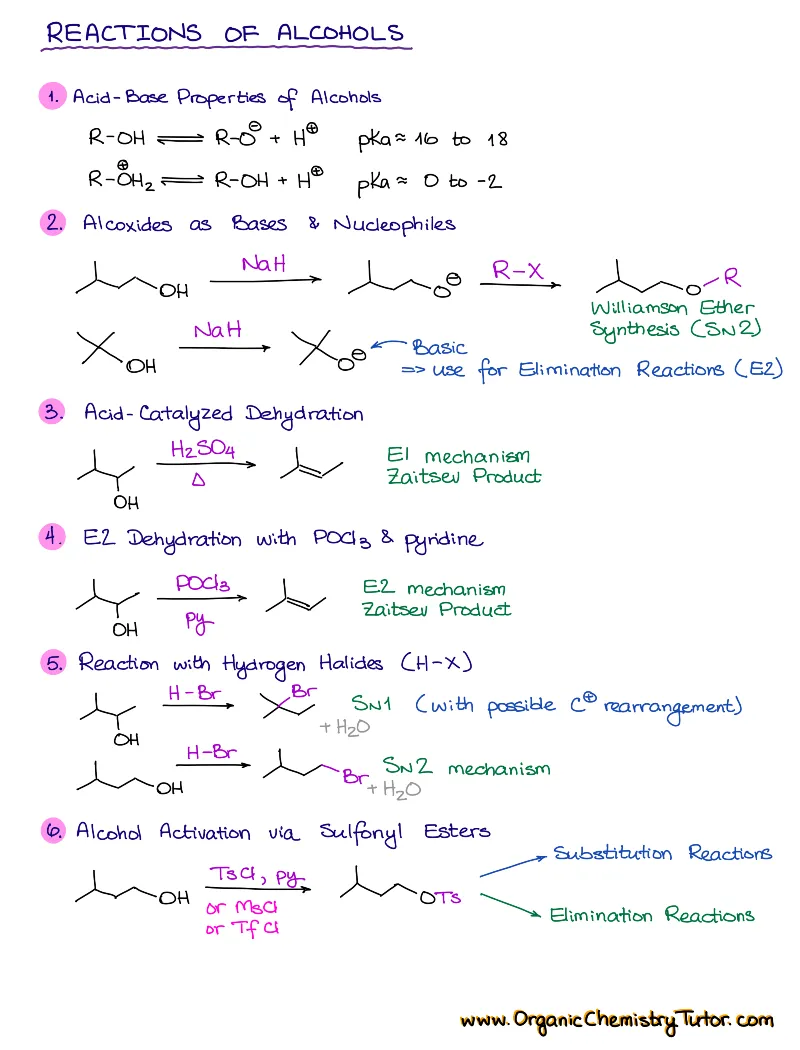 REACTIONS OF ALCOHOLS
1. Acid-Base Properties of Alcohols
R-OH ⇌ R-O⊖ + H⊕ pKa ≈ 16 to 18
R-O⊕H₂ ⇌ R-OH + H⊕ pKa ≈ 0 to -2
2. Alcoxides as Bases & Nucleophiles
OH NaH O⊖ R-X O-R
Williamson Ether
Synthesis (SN2)
OH NaH O⊖ Basic
=> use for Elimination Reactions (E2)
3. Acid-Catalyzed Dehydration
OH H₂SO₄ Δ E1 mechanism
Zaitsev Product
4. E2 Dehydration with POCl₃ & pyridine
OH POCl₃ py E2 mechanism
Zaitsev Product
5. Reaction with Hydrogen Halides (H-X)
OH H-Br Br SN1 (with possible C⊕ rearrangement)
+ H₂O
OH H-Br Br SN2 mechanism
+ H₂O
6. Alcohol Activation via Sulfonyl Esters
OH TsCl, py OTs Substitution Reactions
or MsCl
or TfCl Elimination Reactions
www.OrganicChemistryTutor.com